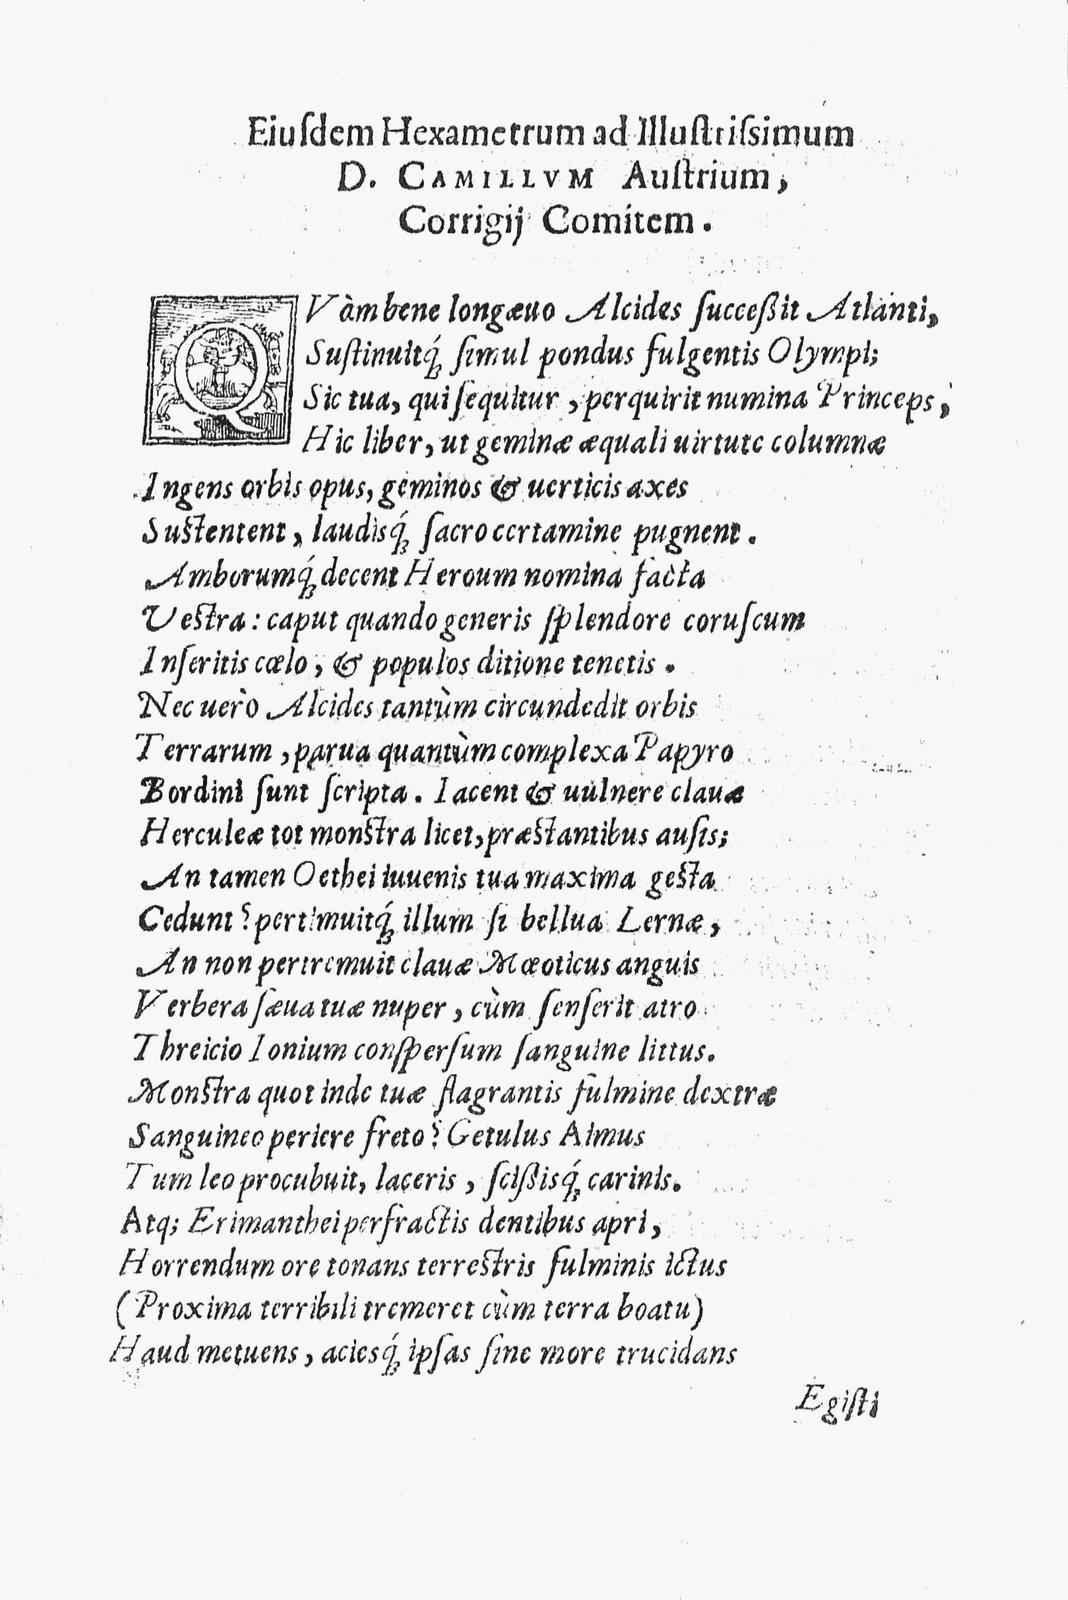 Eiuſdem Hexametrum ad Illuſtriſsimum
D. CAMILLVM Auſtrium,
Corrigij Comitem.
QVàm bene longæuo Alcides ſucceßit Atlanti,
Suſtinuitq́; ſimul pondus fulgentis Olympi;
Sic tua, qui ſequitur, perquirit numina Princeps,
Hic liber, ut geminæ æquali uirtute columnæ
Ingens orbis opus, geminos & uerticis axes
Suſtentent, laudisq́; ſacro certamine pugnent.
Amborumq́; decent Heroum nomina facta
Veſtra: caput quando generis ſplendore coruſcum
Inſeritis cœlo, & populos ditione tenetis.
Nec uerò Alcides tantùm circundedit orbis
Terrarum, parua quantùm complexa Papyro
Bordini ſunt ſcripta. Iacent & uulnere clauæ
Herculeæ tot monſtra licet, præſtantibus auſis;
An tamen Oethei iuuenis tua maxima geſta
Cedunt? pertimuitq́; illum ſi bellua Lernæ,
An non pertremuit clauæ Mœoticus anguis
Verbera ſæua tuæ nuper, cùm ſenſerit atro
Threicio Ionium conſperſum ſanguine littus.
Monſtra quot inde tuæ flagrantis fulmine dextræ
Sanguineo periere freto? Getulus Aimus
Tum leo procubuit, laceris, ſcißisq́; carinis.
Atq; Erimanthei perfractis dentibus apri,
Horrendum ore tonans terreſtris fulminis ictus
(Proxima terribili tremeret cùm terra boatu)
Haud metuens, aciesq́; ipſas ſine more trucidans
Egiſti